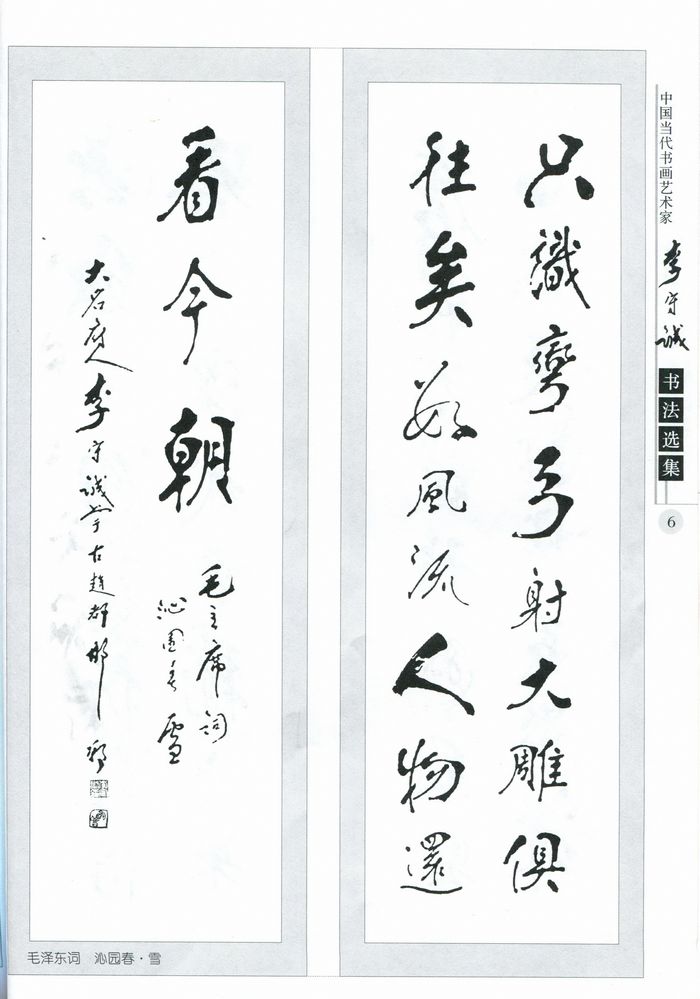 中国当代书画艺术家
李守诚
书法选集
6
只識彎弓射大雕俱
往矣数風流人物還
看今朝
毛主席词
沁園春雪
大名府人李守诚古趙都邯鄲
毛泽东词 沁园春·雪